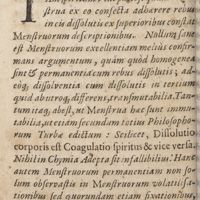 strua ex eo confecta adhærere rebus
in eis dissolutis ex superioribus constat
Menstruorum descriptionibus. Nullum sanè
est Menstruorum excellentiam meliùs confir-
mans argumentum, quàm quòd homogenea
sint & permanentia cum rebus dissolutis; ad-
eoq; dissolventia cum dissolutis in tertium
quid ab utroq; differens, transmutabilia. Tan-
tum itaq; abest, ut Menstrua hæc sint immu-
tabilia, ut etiam secundum totius Philosopho-
rum Turbæ edictum: Scilicet, Dissolutio
corporis est Coagulatio spiritus & vice versa.
Nihil in Chymia Adepta sit infallibilius: Hanc
autem Menstruorum permanentiam non so-
lum observastis in Menstruorum volatilisa-
tionibus, sed quorundam etiam fixationibus,